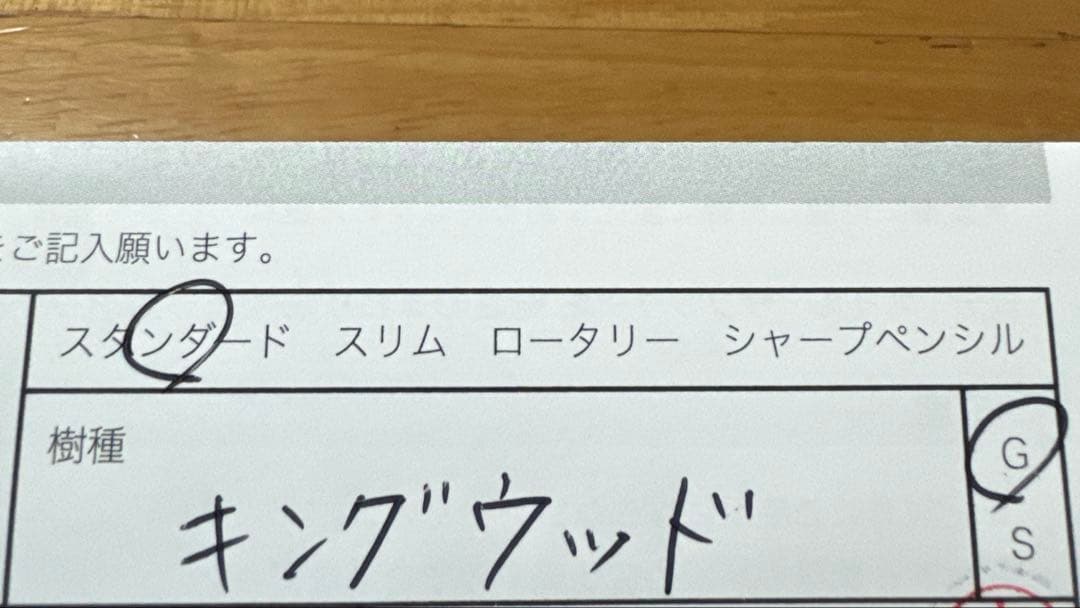 をご記入願います。
スタンダード スリム ロータリー シャープペンシル
樹種
G
キングウッド
S